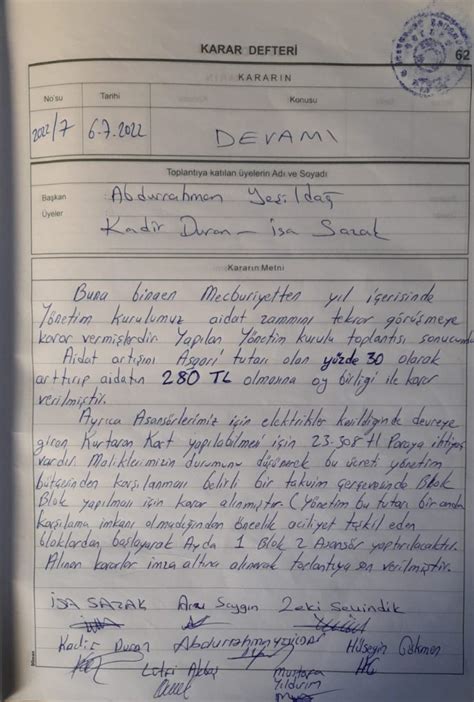 KARAR DEFTERİ
62
KARARIN
No'su
Tarihi
Konusu
2022/7
6.7.2022
DEVAMI
Toplantıya katılan üyelerin Adı ve Soyadı
Başkan
Abdurrahman Yeşildağ
Üyeler
Kadir Duran - isa Sazak
Kararın Metni
Buna binaen Mecburiyetten yıl içerisinde
Yönetim kurulumuz aidat zammını tekrar görüşmeye
karar vermişlerdir Yapılan Yönetim kurulu toplantısı sonucunda
Aidat artışını Asgari tutarı olan yüzde 30 olarak
arttırıp aidatın 280 TL olmasına oy birliği ile karar
verilmiştir.
Ayrıca Asansörlerimiz için elektrikler kesildiğinde devreye
giren Kurtaran Kart yapılabilmesi için 23.308 tl Paraya ihtiyaç
vardır. Maliklerimizin durumunu düşünerek bu ücreti yönetim
bütçesinden karşılanması belirli bir takvim çerçevesinde Blok
Blok yapılması için karar alınmıştır. (Yönetim bu tutarı bir anda
karşılama imkanı olmadığından öncelik aciliyet teşkil eden
bloklardan başlayarak Ayda 1 Blok 2 Asansör yaptırılacaktır.
Alınan kararlar imza altına alınarak toplantıya son verilmiştir.
İSA SAZAK Arzu Saygın Zeki Sevindik
Kadir Duran Abdurrahman Yeşildağ Hüseyin Gökmen
Lütfi Akbaş Mustafa
Yıldırım